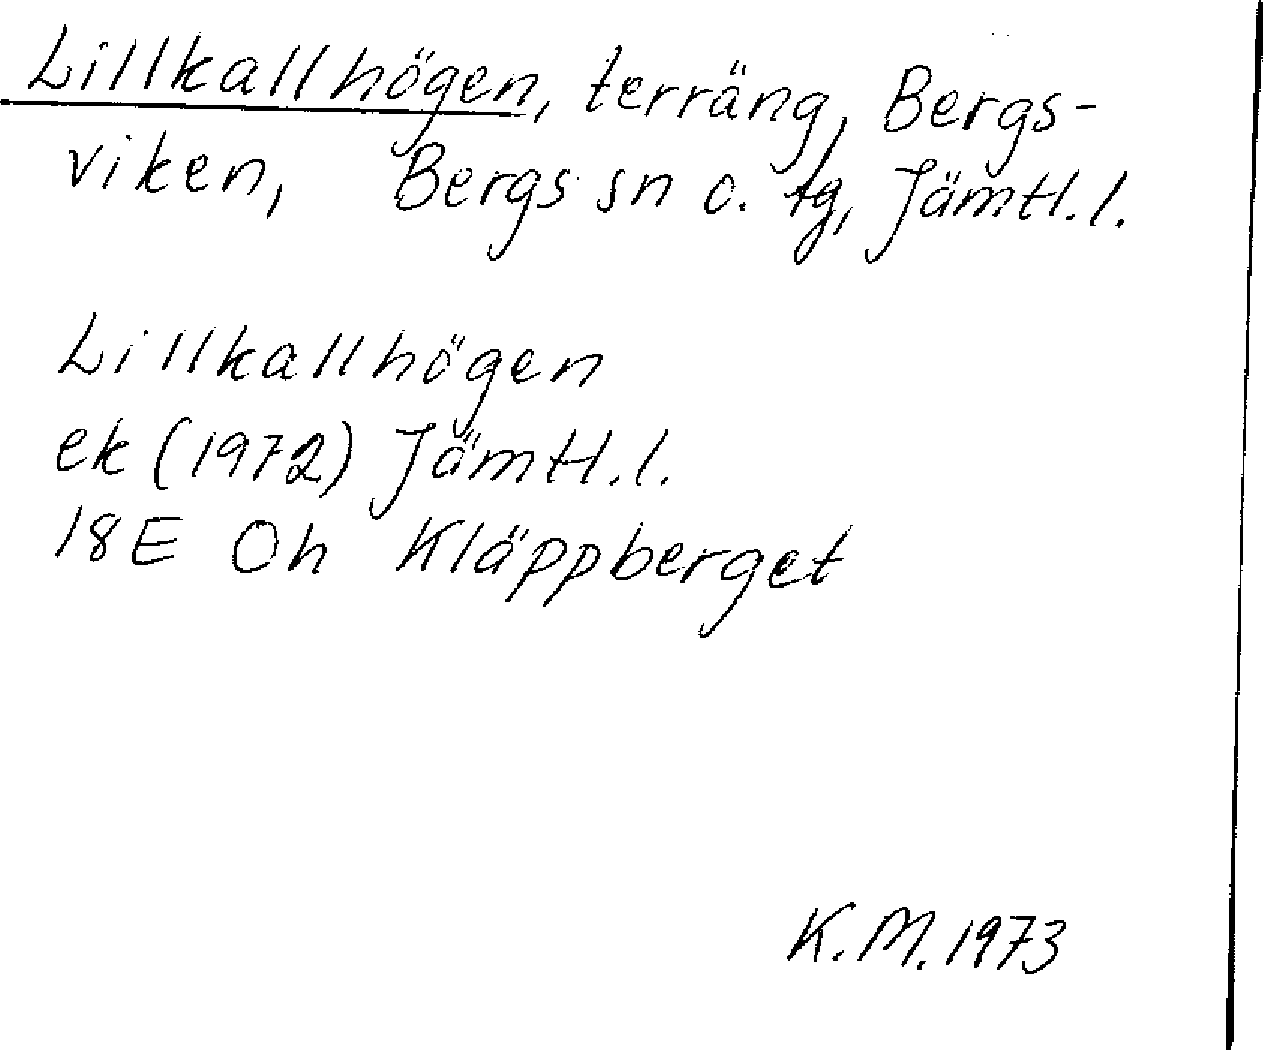 Lillkallhögen, terräng, Bergs-
viken, Bergs sn o. tg, Jämtl.l.
Lillkallhögen
ek (1972) Jämtl.l.
18E Oh Kläppberget
K.M. 1973